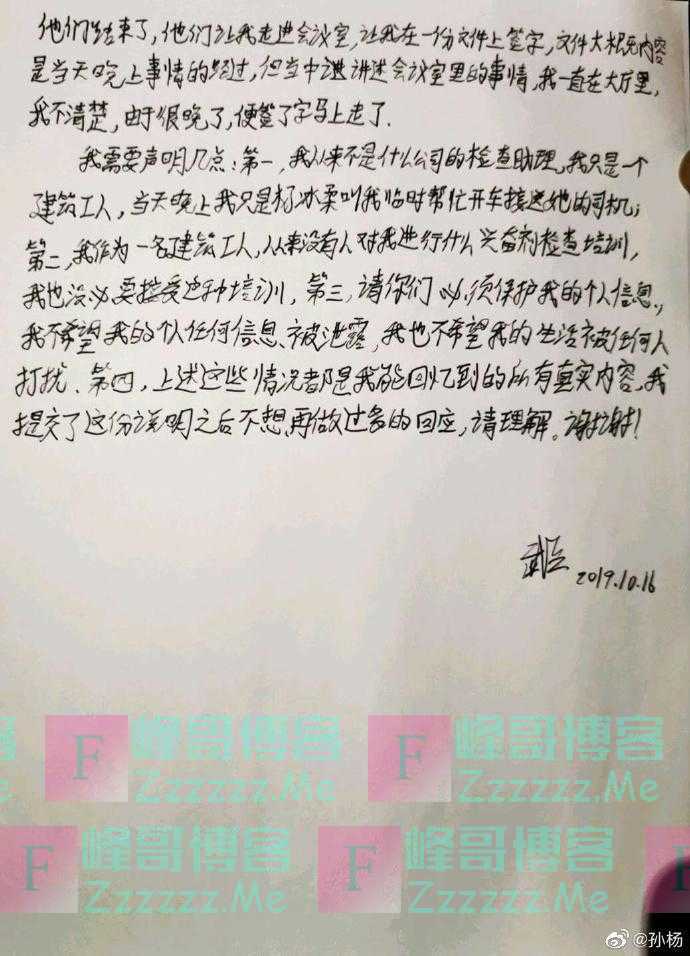 他们结束了，他们让我走进会议室，让我在一份文件上签字，文件大概内容
是当天晚上事情的经过，但当中讲述会议室里的事情，我一直在大厅里，
我不清楚，由于很晚了，便签了字马上走了．
我需要声明几点：第一，我从来不是什么公司的检查助理，我只是一个
建筑工人，当天晚上我只是杨冰柔叫我临时帮忙开车接送她的司机；
第二，我作为一名建筑工人，从来没有人对我进行什么兴奋剂检查培训，
我也没必要接受这种培训，第三，请你们必须保护我的个人信息，
我不希望我的个人任何信息被泄露，我也不希望我的生活被任何人
打扰．第四，上述这些情况都是我能回忆到的所有真实内容，我
提交了这份说明之后不想再做过多的回应，请理解。谢谢！
2019.10.16
F 峰哥博客 F 峰哥博客
Zzzzzz.Me Zzzzzz.Me
F 峰哥博客 F 峰哥博客
Zzzzzz.Me Zzzzzz.Me
@孙杨